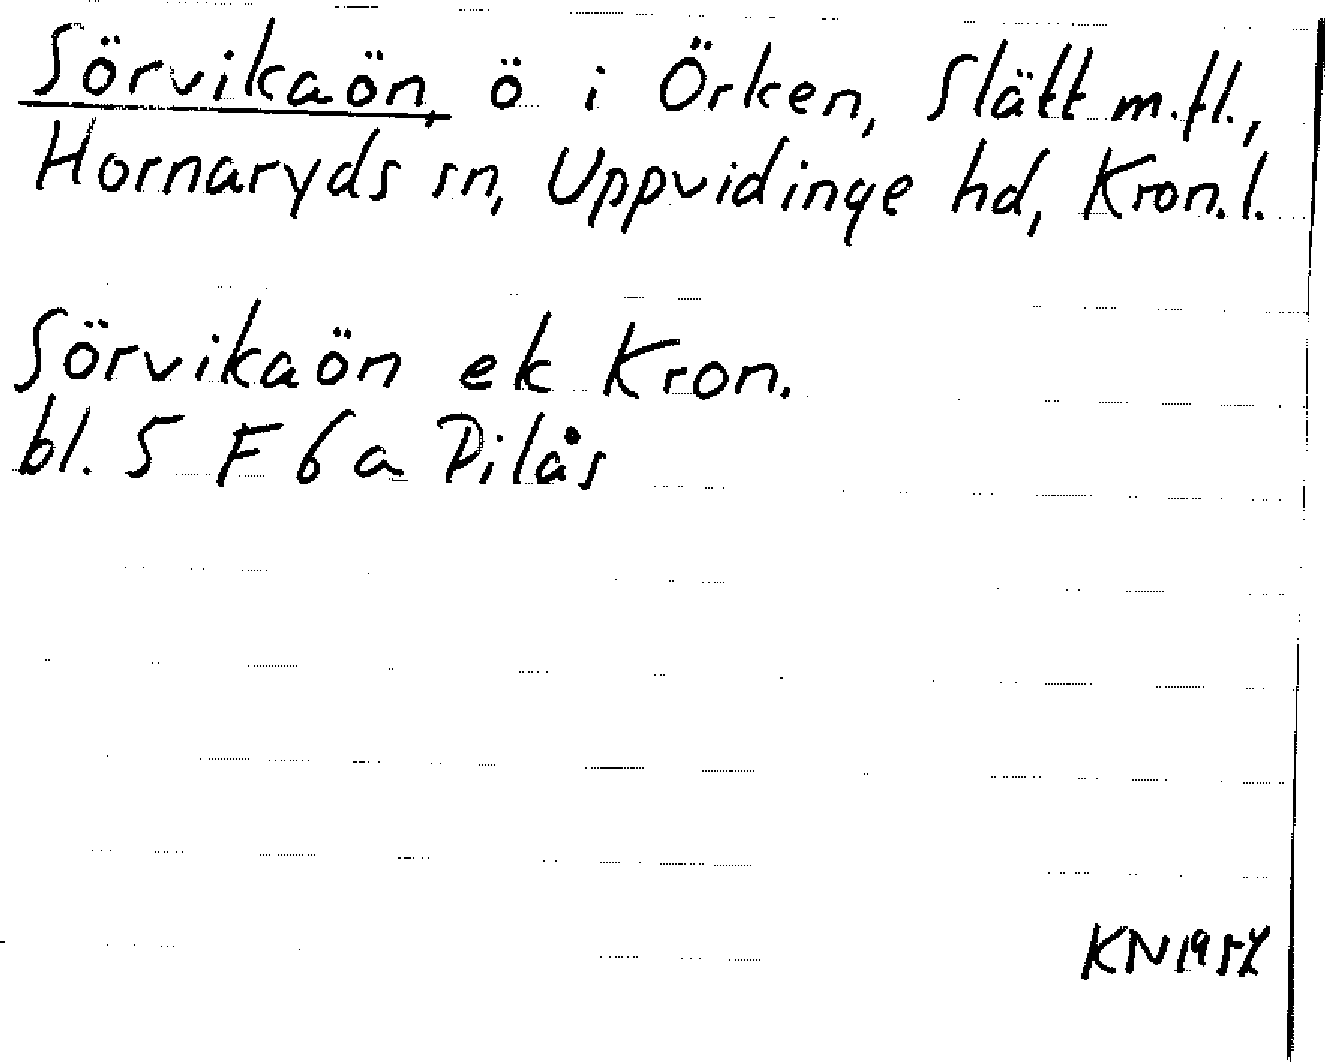 Sörvikaön, ö i Örken, Slätt m.fl.,
Hornaryds sn, Uppvidinge hd, Kron.l.
Sörvikaön ek Kron.
bl. 5 F 6 a Pilås
KN 1957